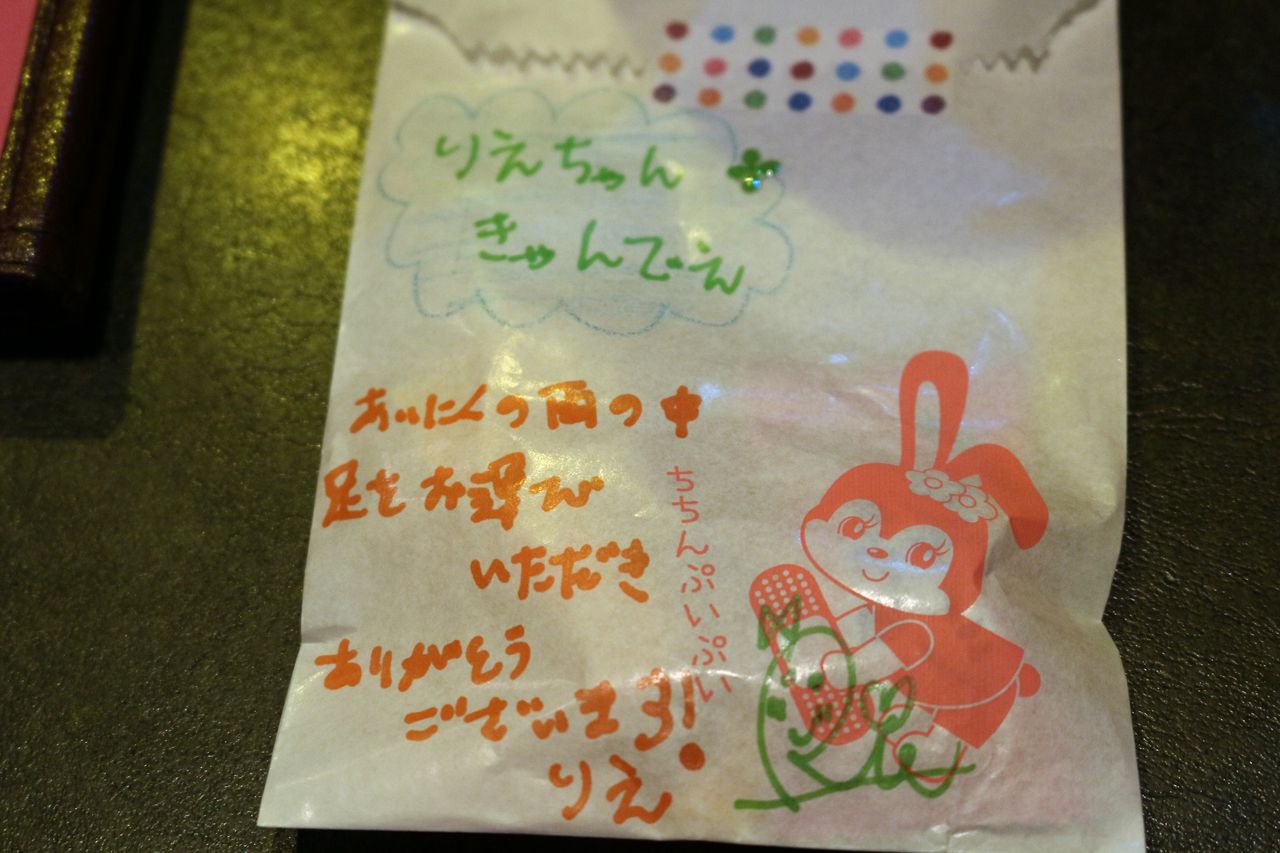 りえちゃん
きゃんでえ
あいにくの雨の中
足をお運び
いただき
ありがとう
ございます!
りえ
ちちんぷいぷい